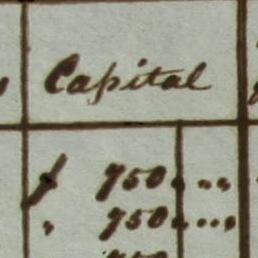 Capital
ƒ 750. „
„ 750. „
750